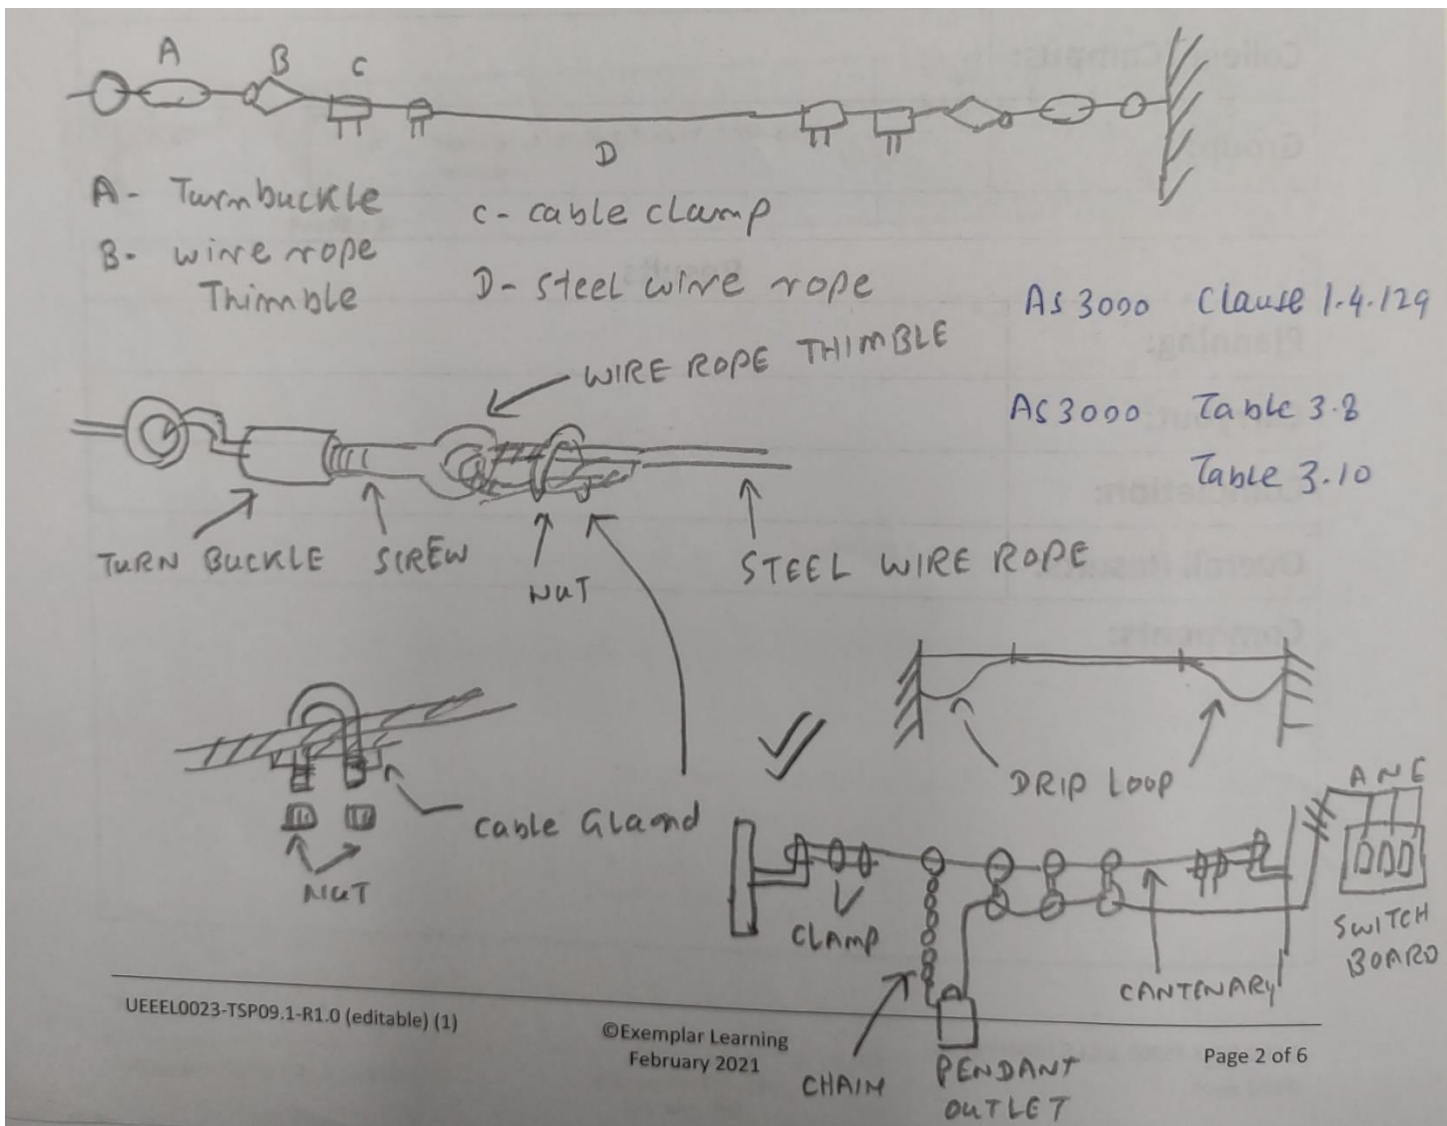 A B C
D
A- Turnbuckle
B- wire rope
Thimble
C- cable clamp
D- Steel wire rope
AS 3000 Clause 1.4.129
AS 3000 Table 3.8
Table 3.10
WIRE ROPE THIMBLE
TURN BUCKLE
SCREW
NUT
STEEL WIRE ROPE
Cable Gland
NUT
DRIP LOOP
A N E
SWITCH
BOARD
CLAMP
CANTENARY
CHAIN
PENDANT
OUTLET
UEEEL0023-TSP09.1-R1.0 (editable) (1)
©Exemplar Learning
February 2021
Page 2 of 6